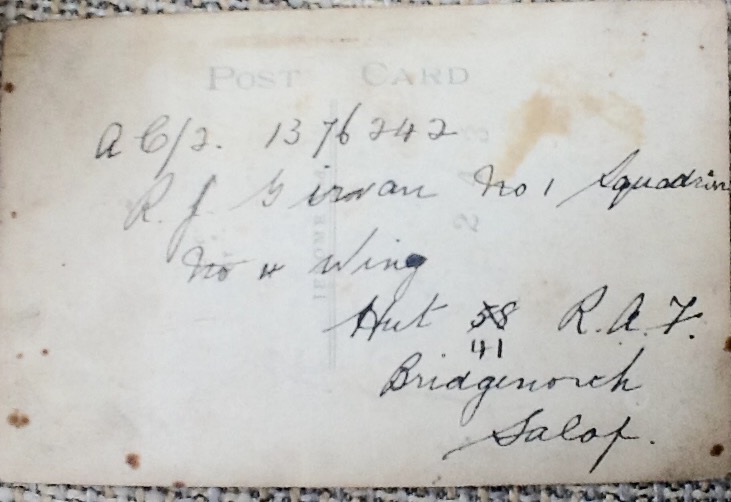 POST CARD
A C/2. 1376242
R. J. Girvan No 1 Squadron
No 4 Wing
Hut 58 R.A.F.
41
Bridgenorth
Salop.